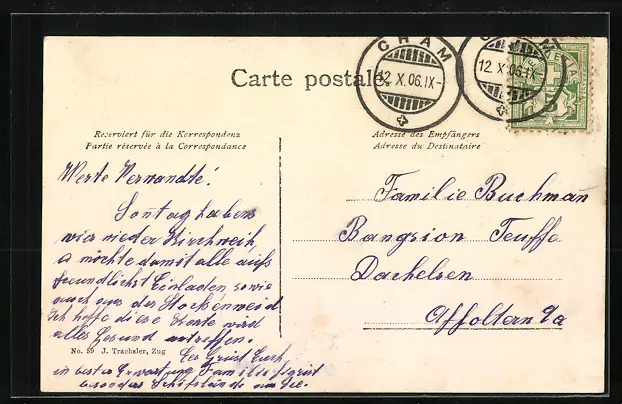 Carte postale
CHAM
12. X. 06. IX-
CHAM
12. X. 06. IX-
Reserviert für die Korrespondenz
Partie réservée à la Correspondance
Adresse des Empfängers
Adresse du Destinataire
Werte Vernandte!
Sontag haben
wir wieder Kirchweih,
möchte damit alle aufs
freundlichst Einladen sowie
auch aus der Stockenweid
Ich hoffe diese Karte wird
alles Gesund antreffen.
Es Grüst Euch
in bester Erwartung Familie
besonders am See.
No. 59 J. Trachsler, Zug
Familie Buchman
Bangsion Teuffe
Dachelsen
Affoltern a/a